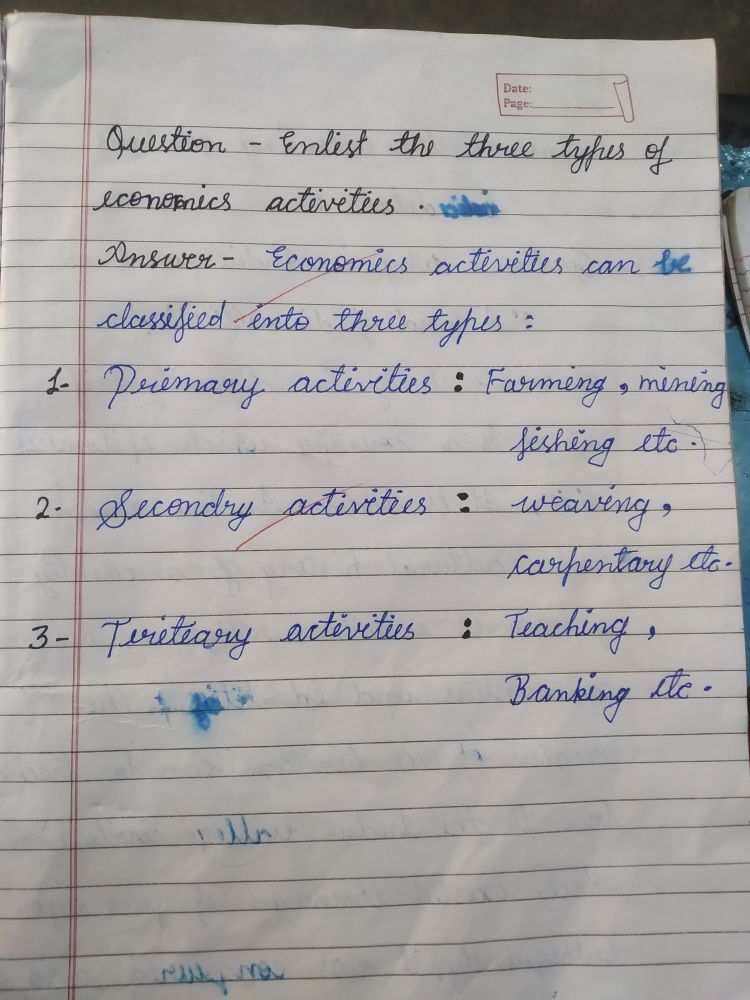 Date:
Page:
Question - Enlist the three types of
economics activities .
Answer - Economics activities can be
classified into three types :
1- Primary activities : Farming , mining
fishing etc .
2- Secondry activities : weaving ,
carpentary etc .
3- Teriteary activities : Teaching ,
Banking etc .